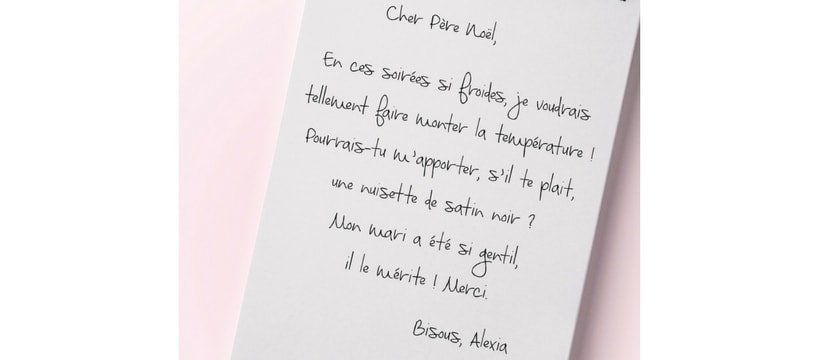 Cher Père Noël,
En ces soirées si froides, je voudrais
tellement faire monter la température !
Pourrais-tu m'apporter, s'il te plait,
une nuisette de satin noir ?
Mon mari a été si gentil,
il le mérite ! Merci.
Bisous, Alexia